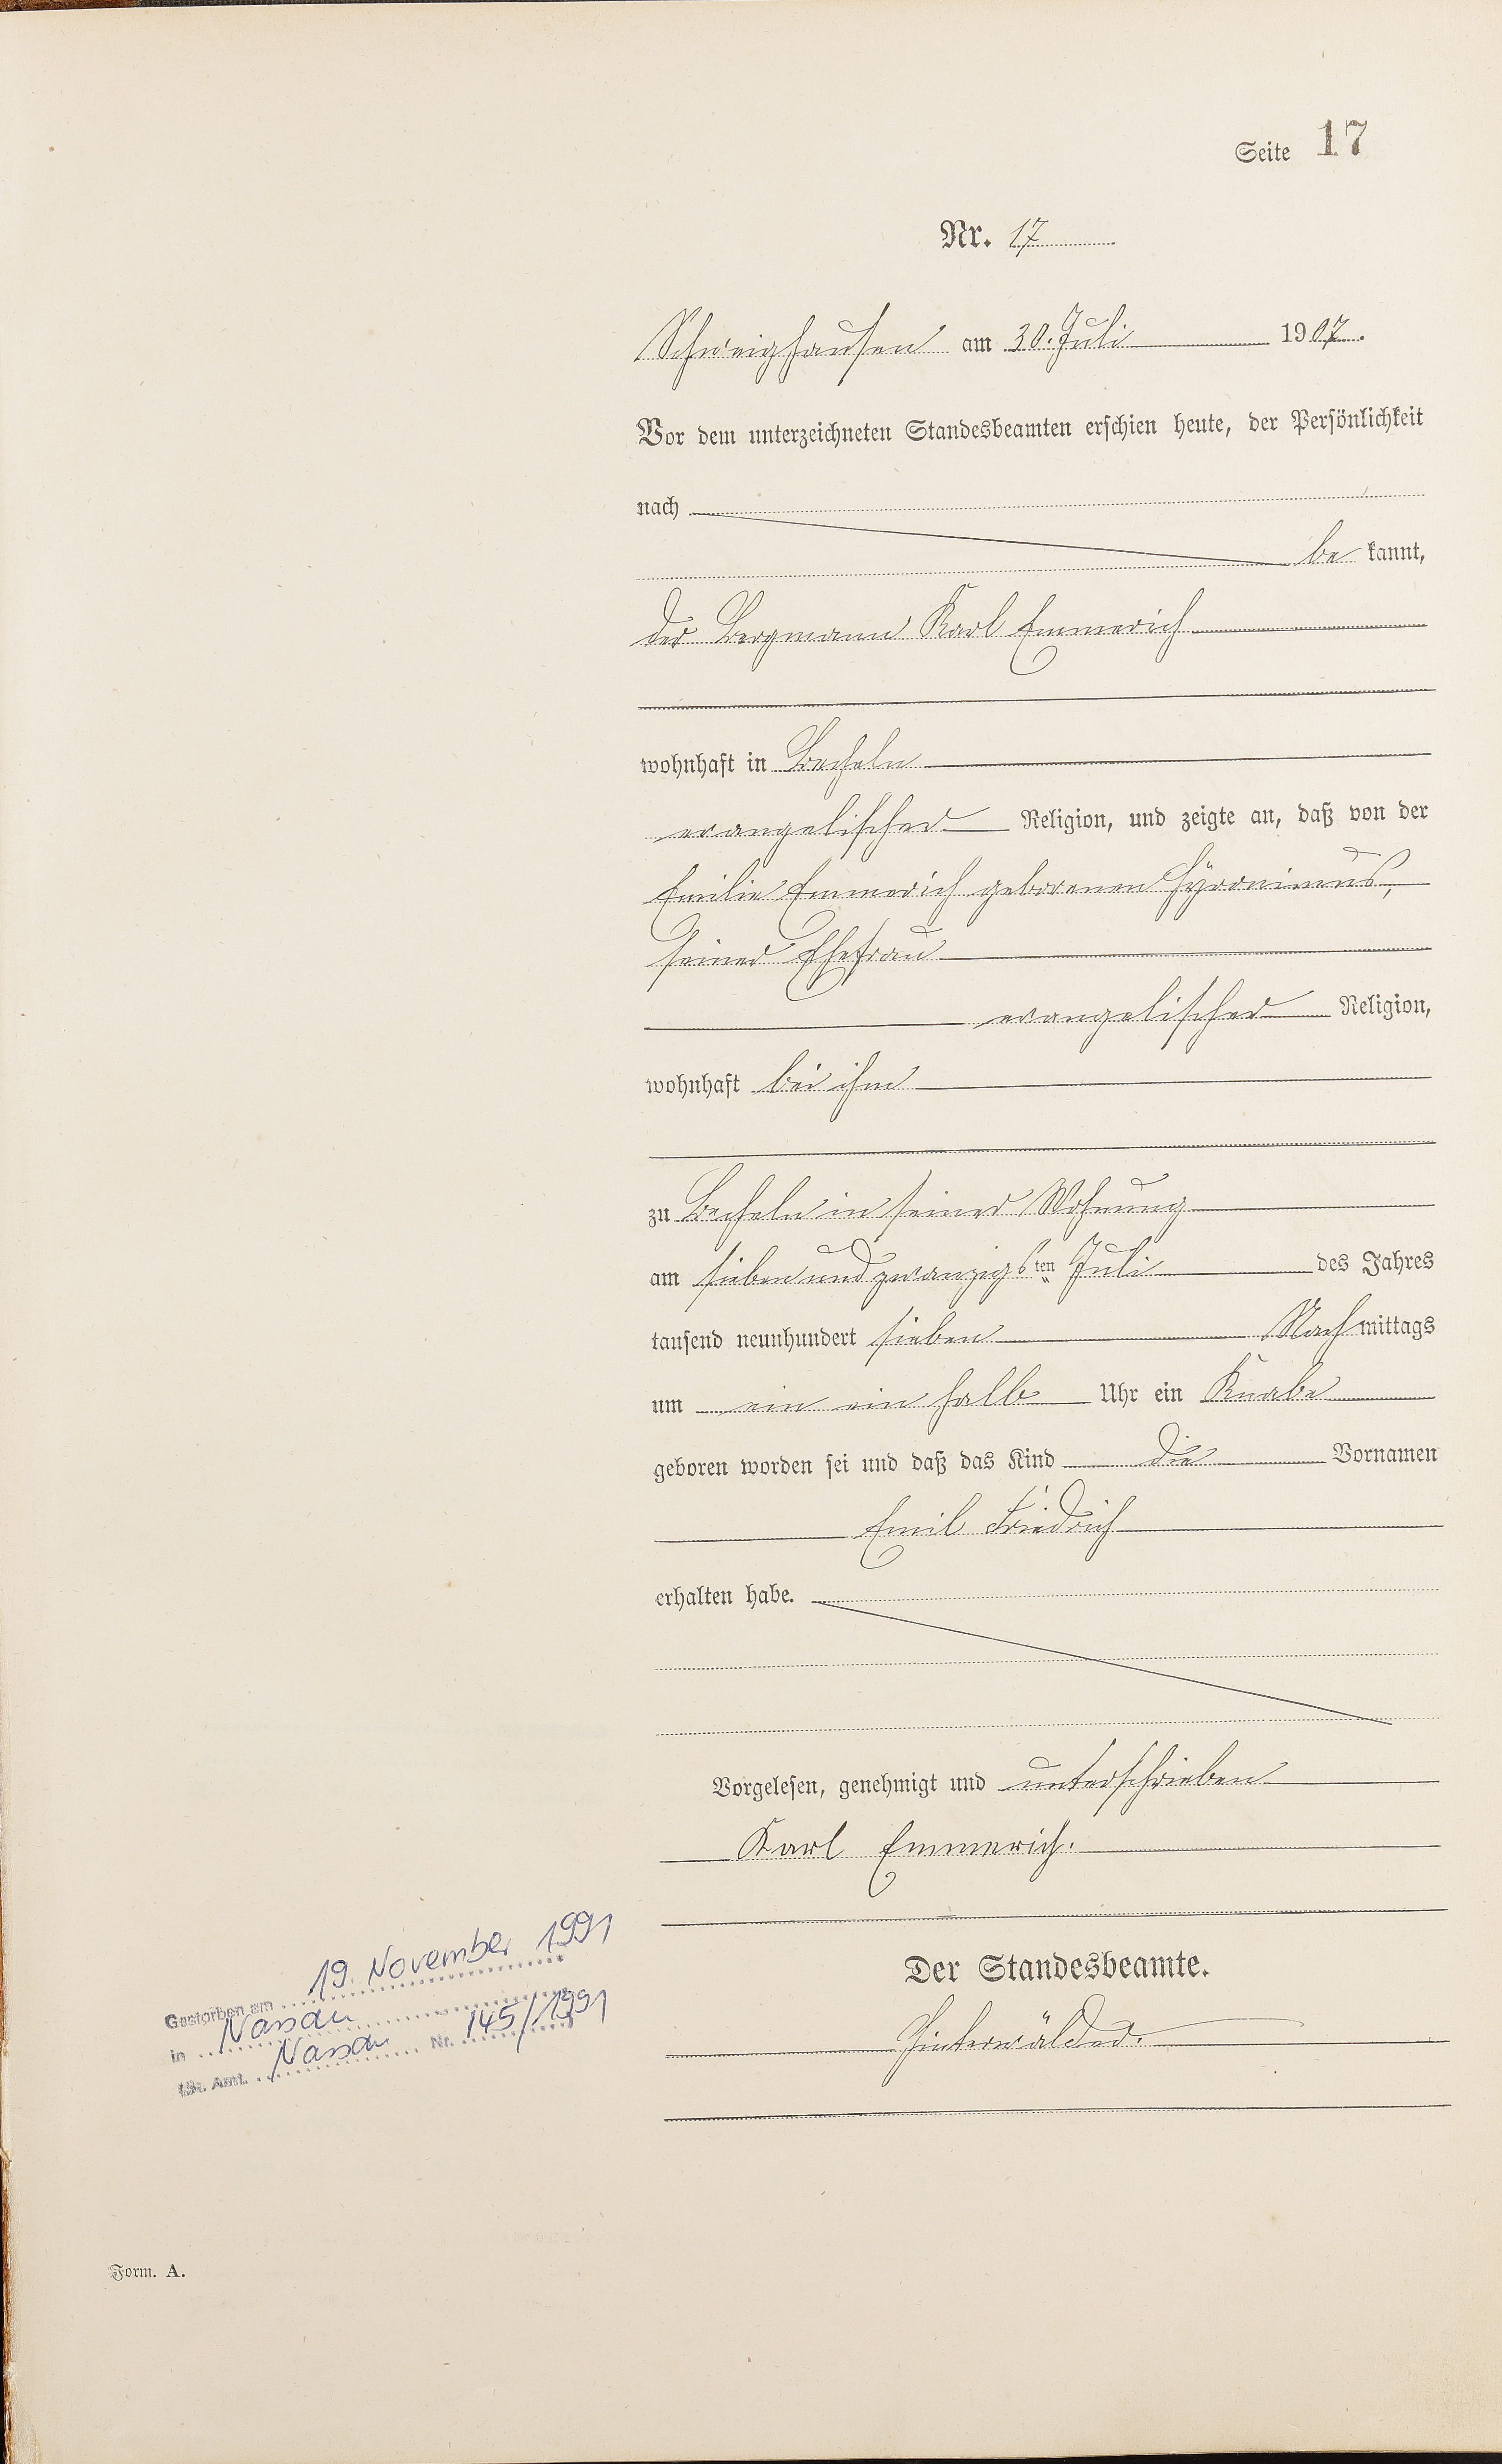 Seite 17
Nr. 17
Schweighausen am 30. Juli 1907.
Vor dem unterzeichneten Standesbeamten erschien heute, der Persönlichkeit
nach
be kannt,
der Bergmann Karl Emmerich
wohnhaft in Becheln
evangelischer Religion, und zeigte an, daß von der
Emilie Emmerich geborenen Hyronimus,
seiner Ehefrau
evangelischer Religion,
wohnhaft bei ihm
zu Becheln in seiner Wohnung
am sieben und zwanzigsten Juli des Jahres
tausend neunhundert sieben Nachmittags
um ein ein halb Uhr ein Knabe
geboren worden sei und daß das Kind die Vornamen
Emil Friedrich
erhalten habe.
Vorgelesen, genehmigt und unterschrieben
Karl Emmerich.
Der Standesbeamte.
Hinterwälder.
Gestorben am 19. November 1991
in Nassau
St. Amt. Nassau Nr. 145/1991
Form. A.